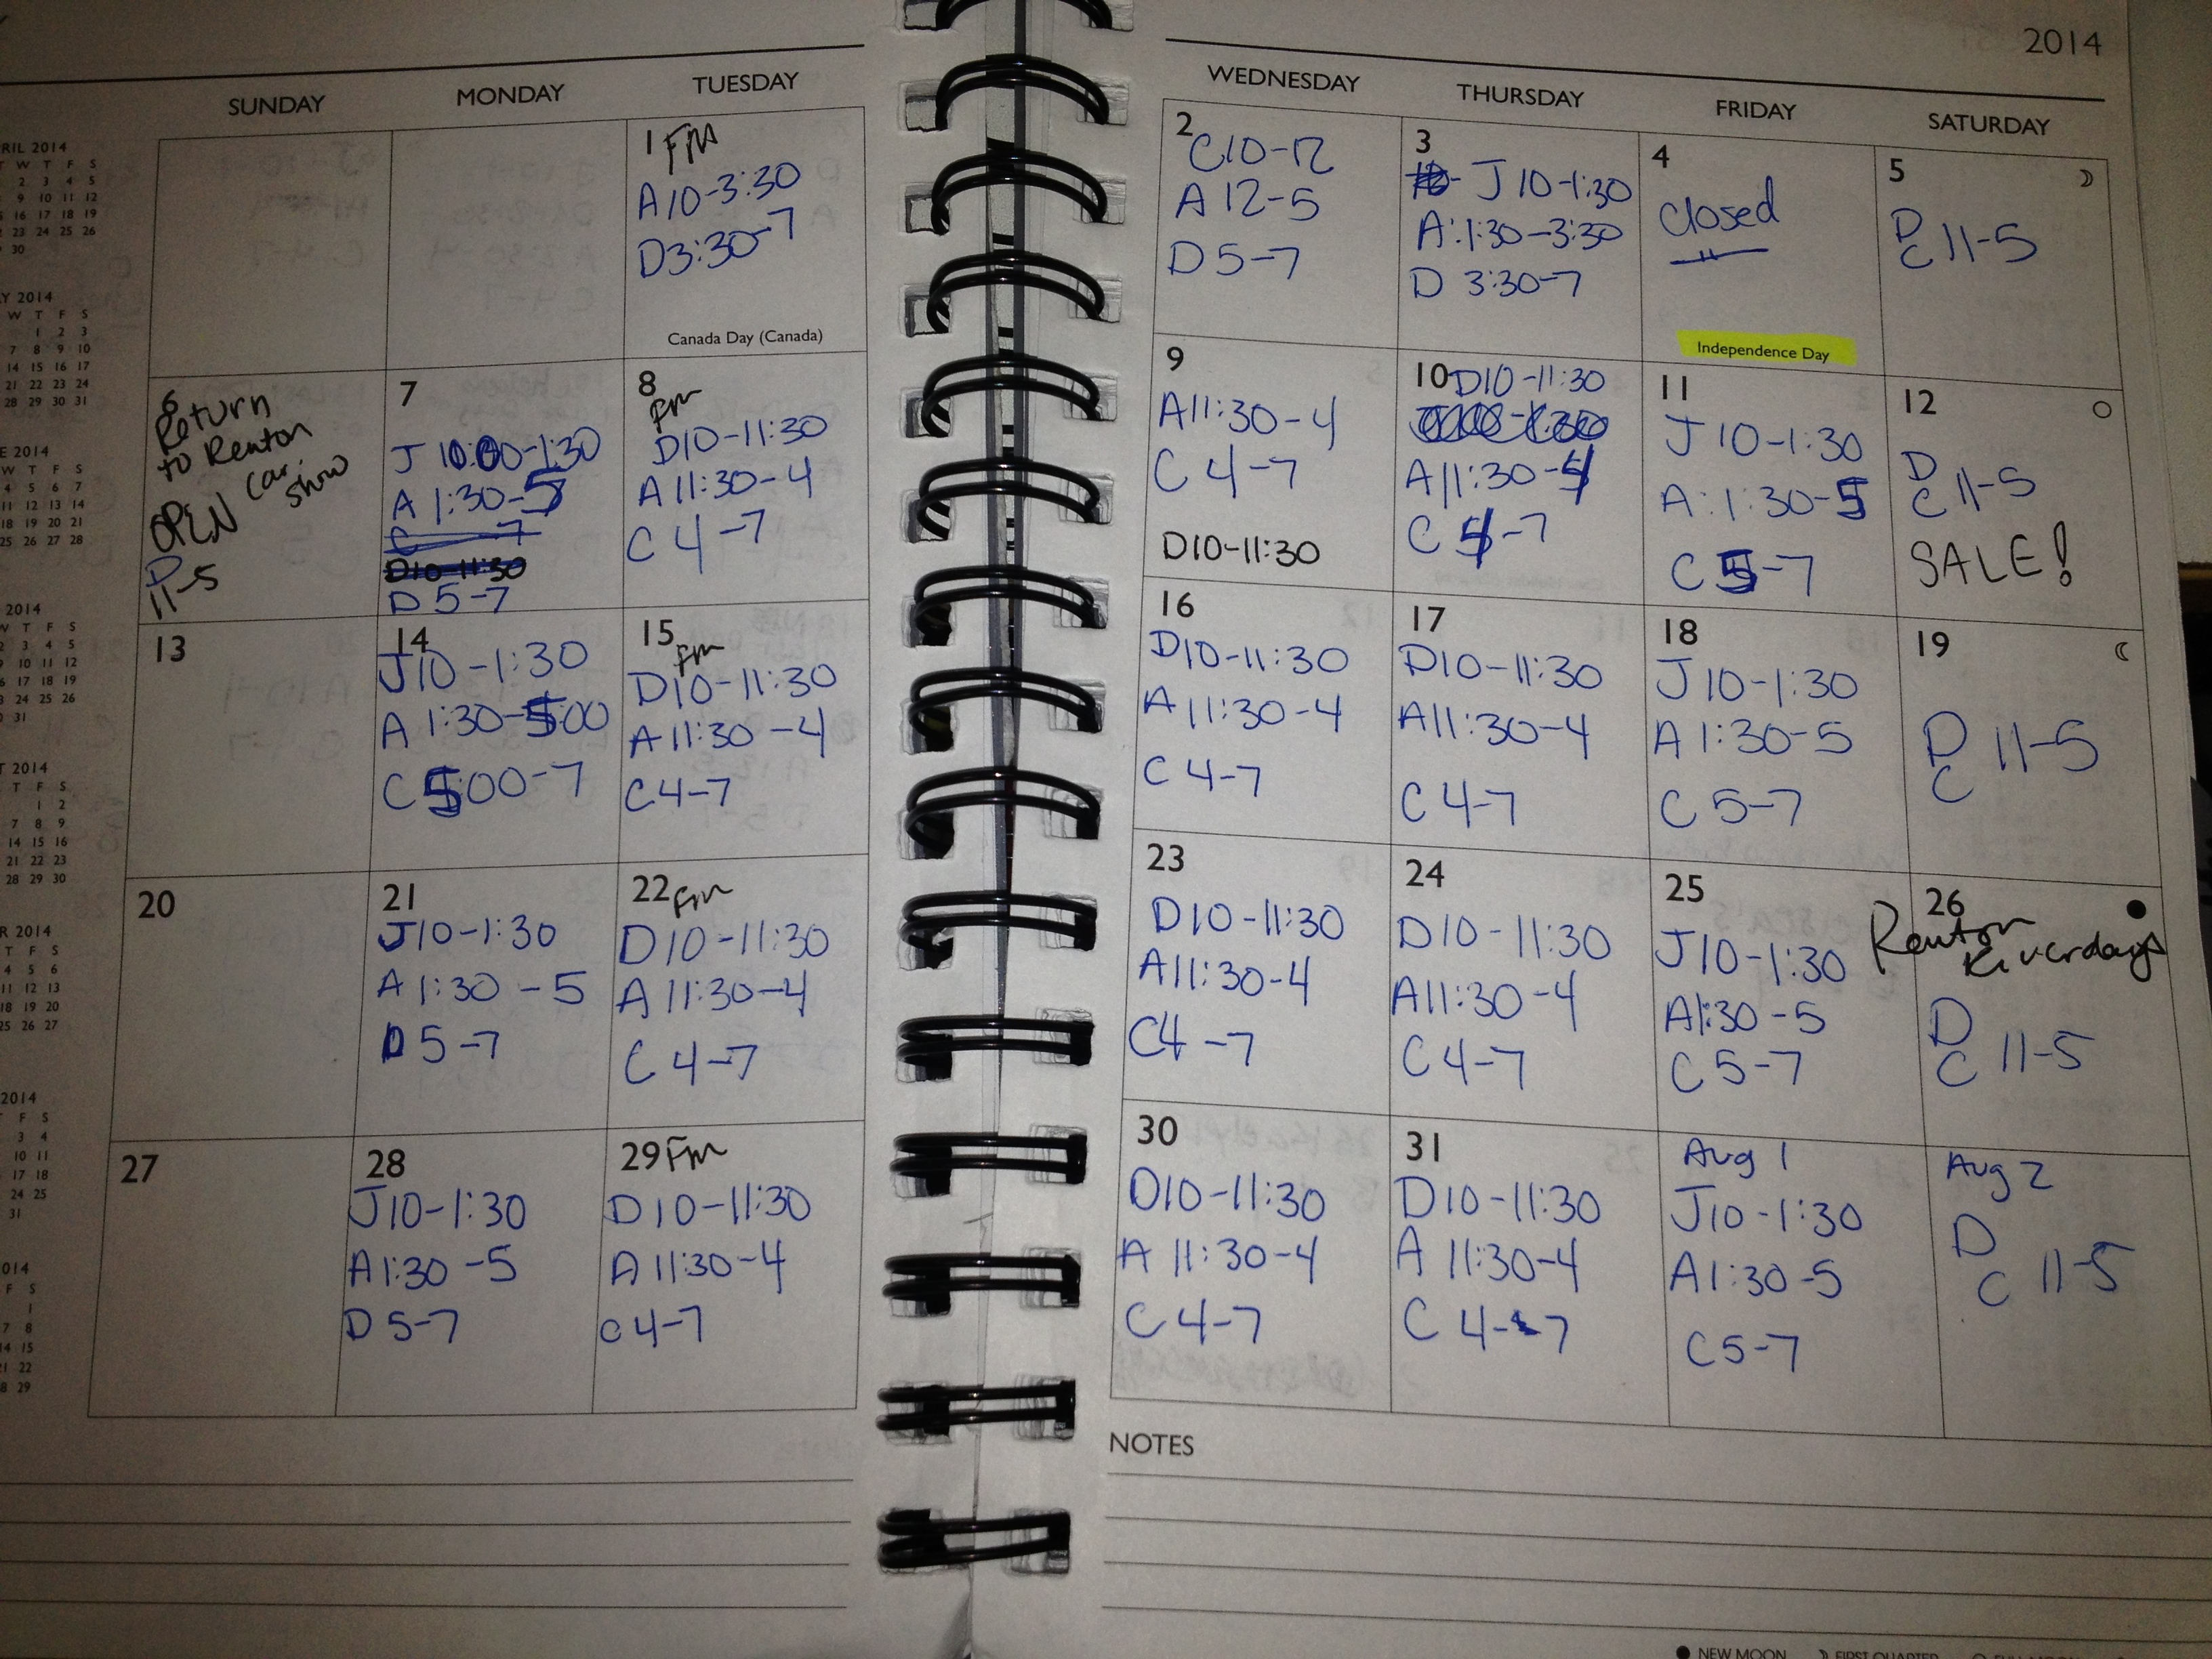 2014
SUNDAY MONDAY TUESDAY WEDNESDAY THURSDAY FRIDAY SATURDAY
1 Fm
A 10-3:30
D 3:30-7
Canada Day (Canada)
2
C 10-12
A 12-5
D 5-7
3
J 10-1:30
A:1:30-3:30
D 3:30-7
4
closed
Independence Day
5
D
C 11-5
6
Return
to Renton
car
show
OPEN
D
11-5
7
J 10:00-1:30
A 1:30-5
C 7
D10-11:30
D 5-7
8
Fm
D10-11:30
A 11:30-4
C 4-7
9
A11:30-4
C 4-7
D10-11:30
10 D10-11:30
A11:30-4
C 4-7
11
J 10-1:30
A:1:30-5
C 5-7
12
D
C 11-5
SALE!
13
14
J10-1:30
A 1:30-5:00
C 5:00-7
15
Fm
D10-11:30
A 11:30-4
C4-7
16
D10-11:30
A 11:30-4
C 4-7
17
D10-11:30
A11:30-4
C 4-7
18
J 10-1:30
A 1:30-5
C 5-7
19
D
C 11-5
20
21
J10-1:30
A 1:30-5
D 5-7
22 Fm
D10-11:30
A 11:30-4
C 4-7
23
D10-11:30
A11:30-4
C4-7
24
D10-11:30
A11:30-4
C 4-7
25
J10-1:30
A1:30-5
C 5-7
26
Renton
Riverdays
D
C 11-5
27
28
J10-1:30
A1:30-5
D 5-7
29 Fm
D10-11:30
A 11:30-4
C 4-7
30
D10-11:30
A 11:30-4
C 4-7
31
D10-11:30
A 11:30-4
C 4-7
Aug 1
J10-1:30
A1:30-5
C5-7
Aug 2
D
C 11-5
NOTES
NEW MOON